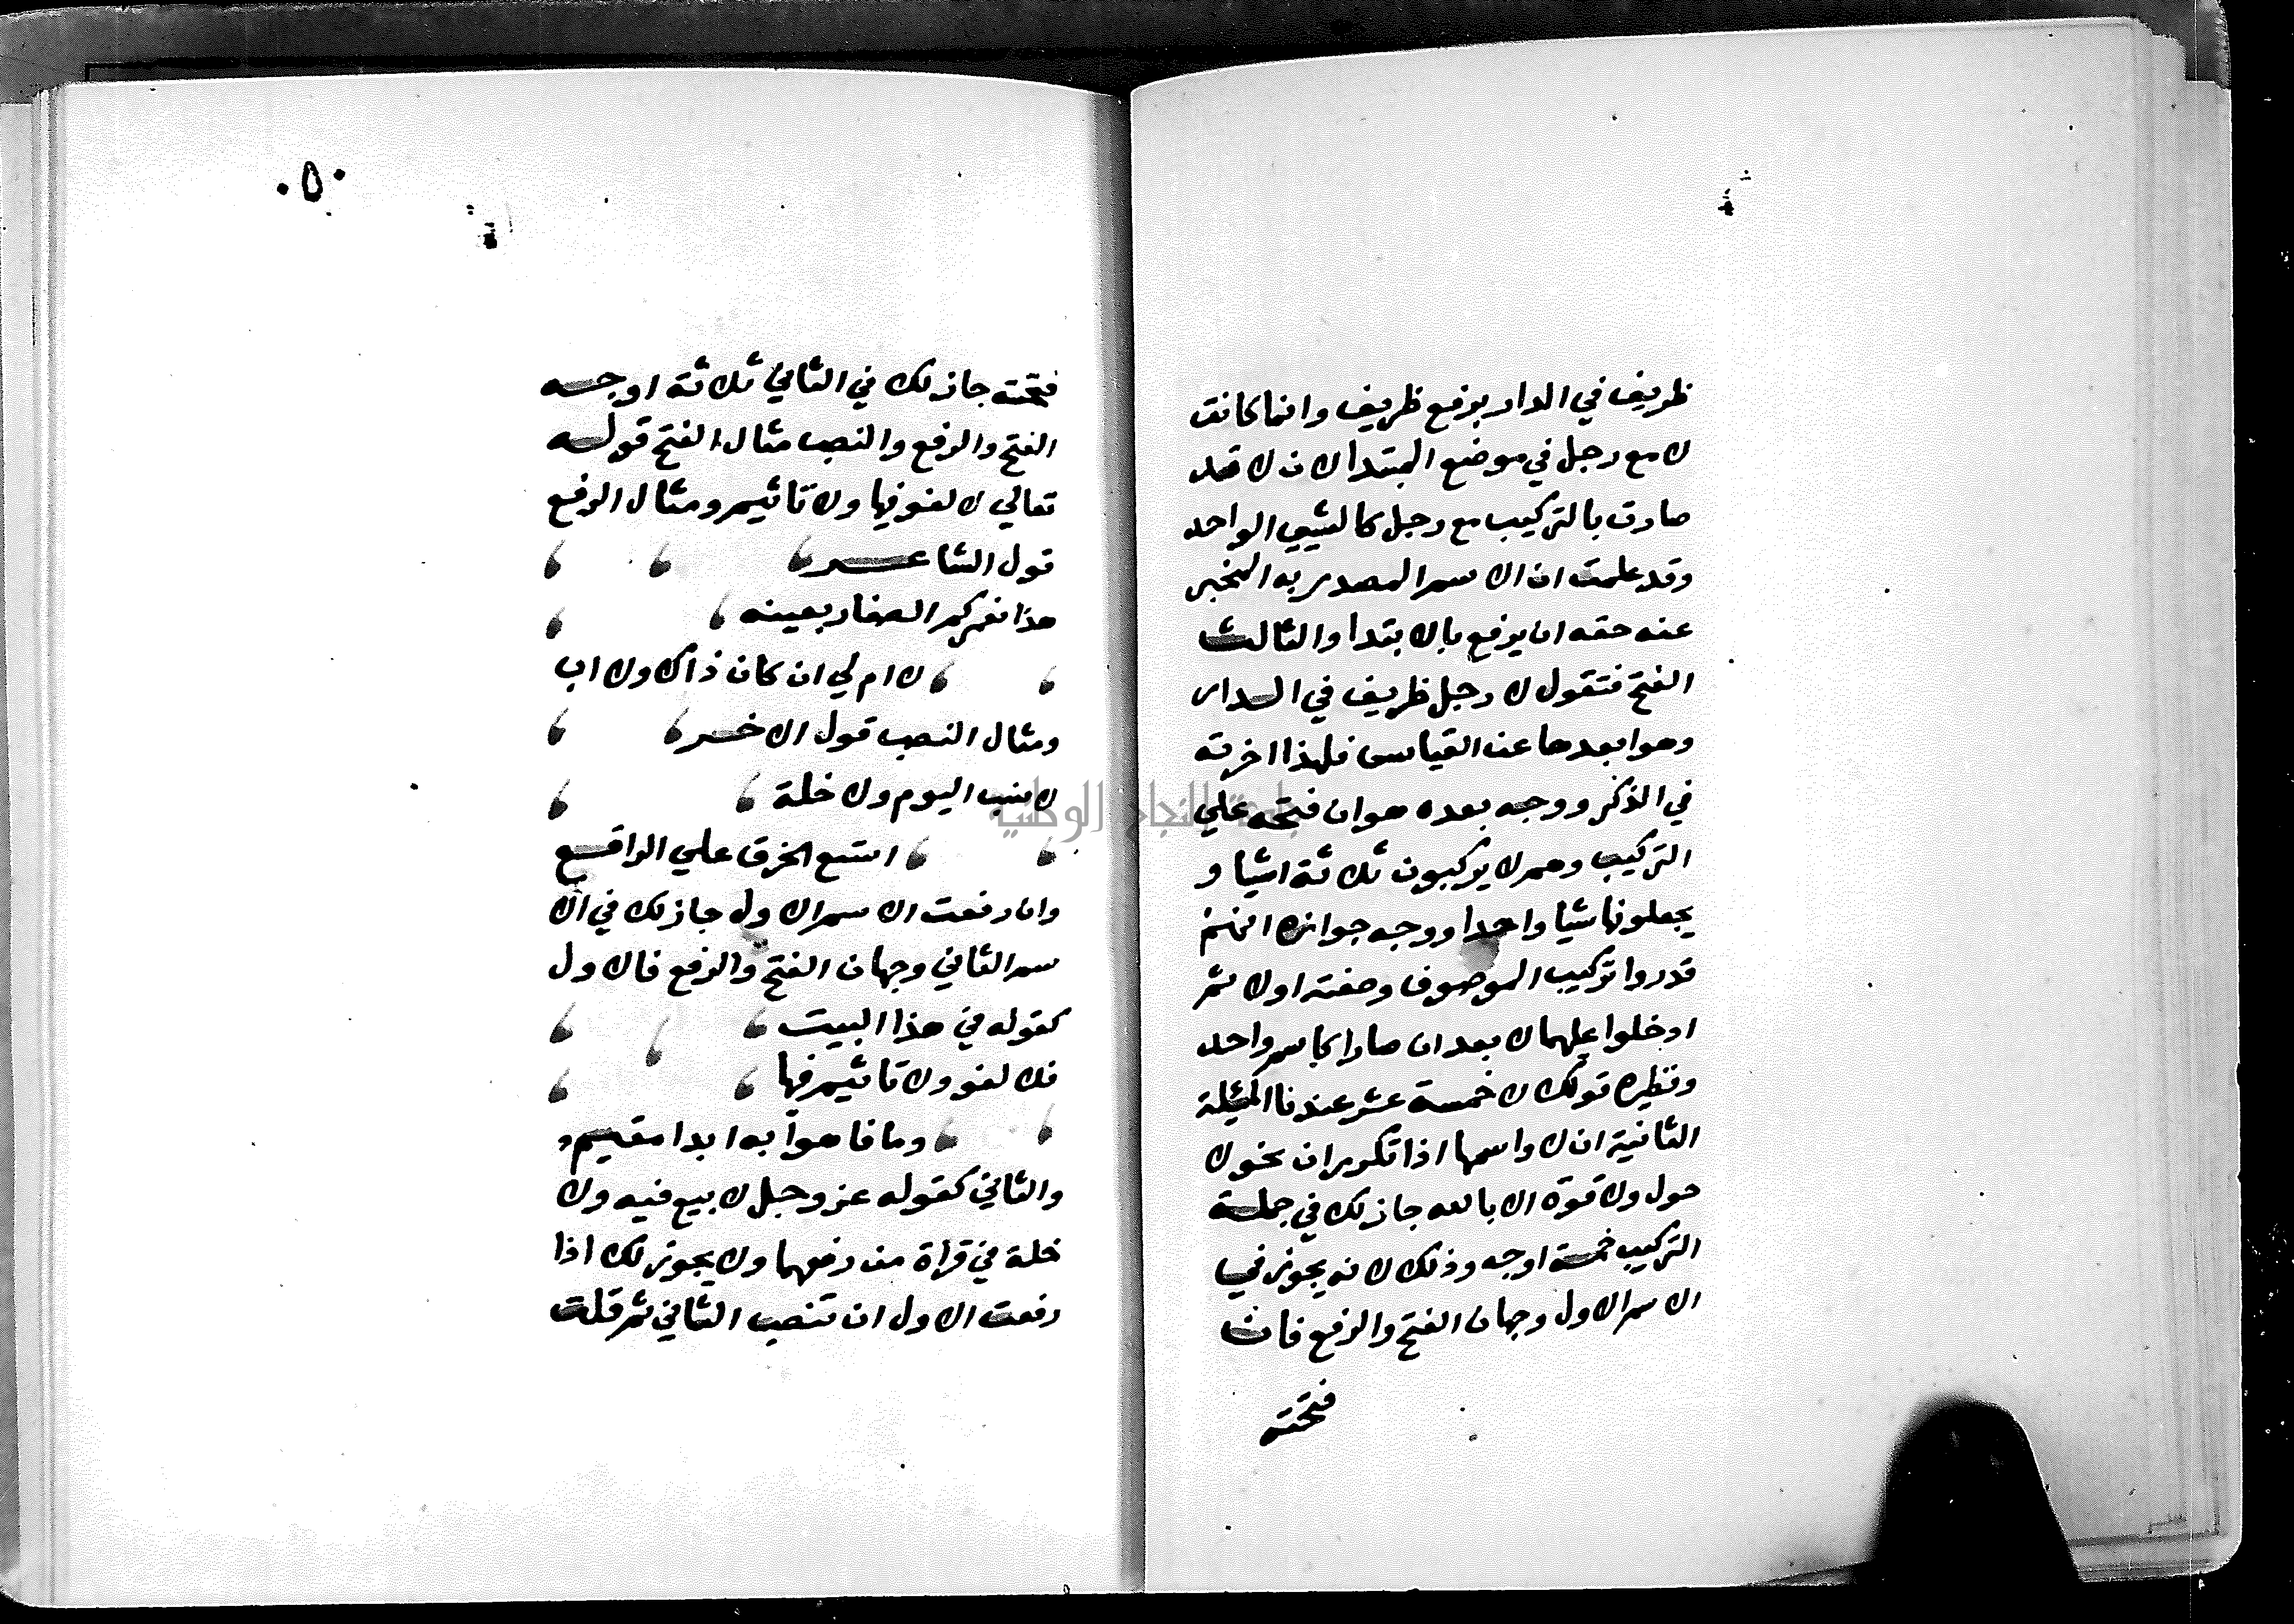 ظريف في الدار برفع ظريف وانما كانت
لا مع رجل في موضع المبتدا لان لا قد
صارت بالتركيب مع رجل كالشيي الواحد
وقد علمت ان الاسم المصدر به المخبر
عنه حقه ان يرفع بالابتدا والثالث
الفتح فتقول لا رجل ظريف في الدار
وهو ابعدها عن القياس فلهذا اخرته
في الذكر ووجه بعده هو ان فتحه علي
التركيب وهم لا يركبون ثلاثة اشيا و
يجعلونها شيا واحدا ووجه جوازه انهم
قدروا تركيب الموصوف وصفته اولا ثم
ادخلوا عليهما لا بعد ان صارا كاسم واحد
ونظيره قولك لا خمسة عشر عندنا المسئلة
الثانية ان لا واسمها اذا تكرران نحو لا
حول ولا قوة الا بالله جاز لك في جملة
التركيب خمسة اوجه وذلك لانه يجوز في
الاسم الاول وجهان الفتح والرفع فان
فتحته
٥٠
فتحته جاز لك في الثاني ثلاثة اوجه
الفتح والرفع والنصب مثال الفتح قوله
تعالي لا لغو فيها ولا تاثيم ومثال الرفع
قول الشاعر
هذا لعمركم الصغار بعينه
لا ام لي ان كان ذاك ولا اب
ومثال النصب قول الاخر
لا نسب اليوم ولا خلة
اتسع الخرق علي الراقع
وان رفعت الاسم الاول جاز لك في الا
سم الثاني وجهان الفتح والرفع فالاول
كقوله في هذا البيت
فلا لغو ولا تاثيم فيها
وما فاهوا به ابدا مقيم
والثاني كقوله عز وجل لا بيع فيه ولا
خلة في قراة من رفعهما ولا يجوز لك اذا
رفعت الاول ان تنصب الثاني ثم قلت
جامعة النجاح الوطنية